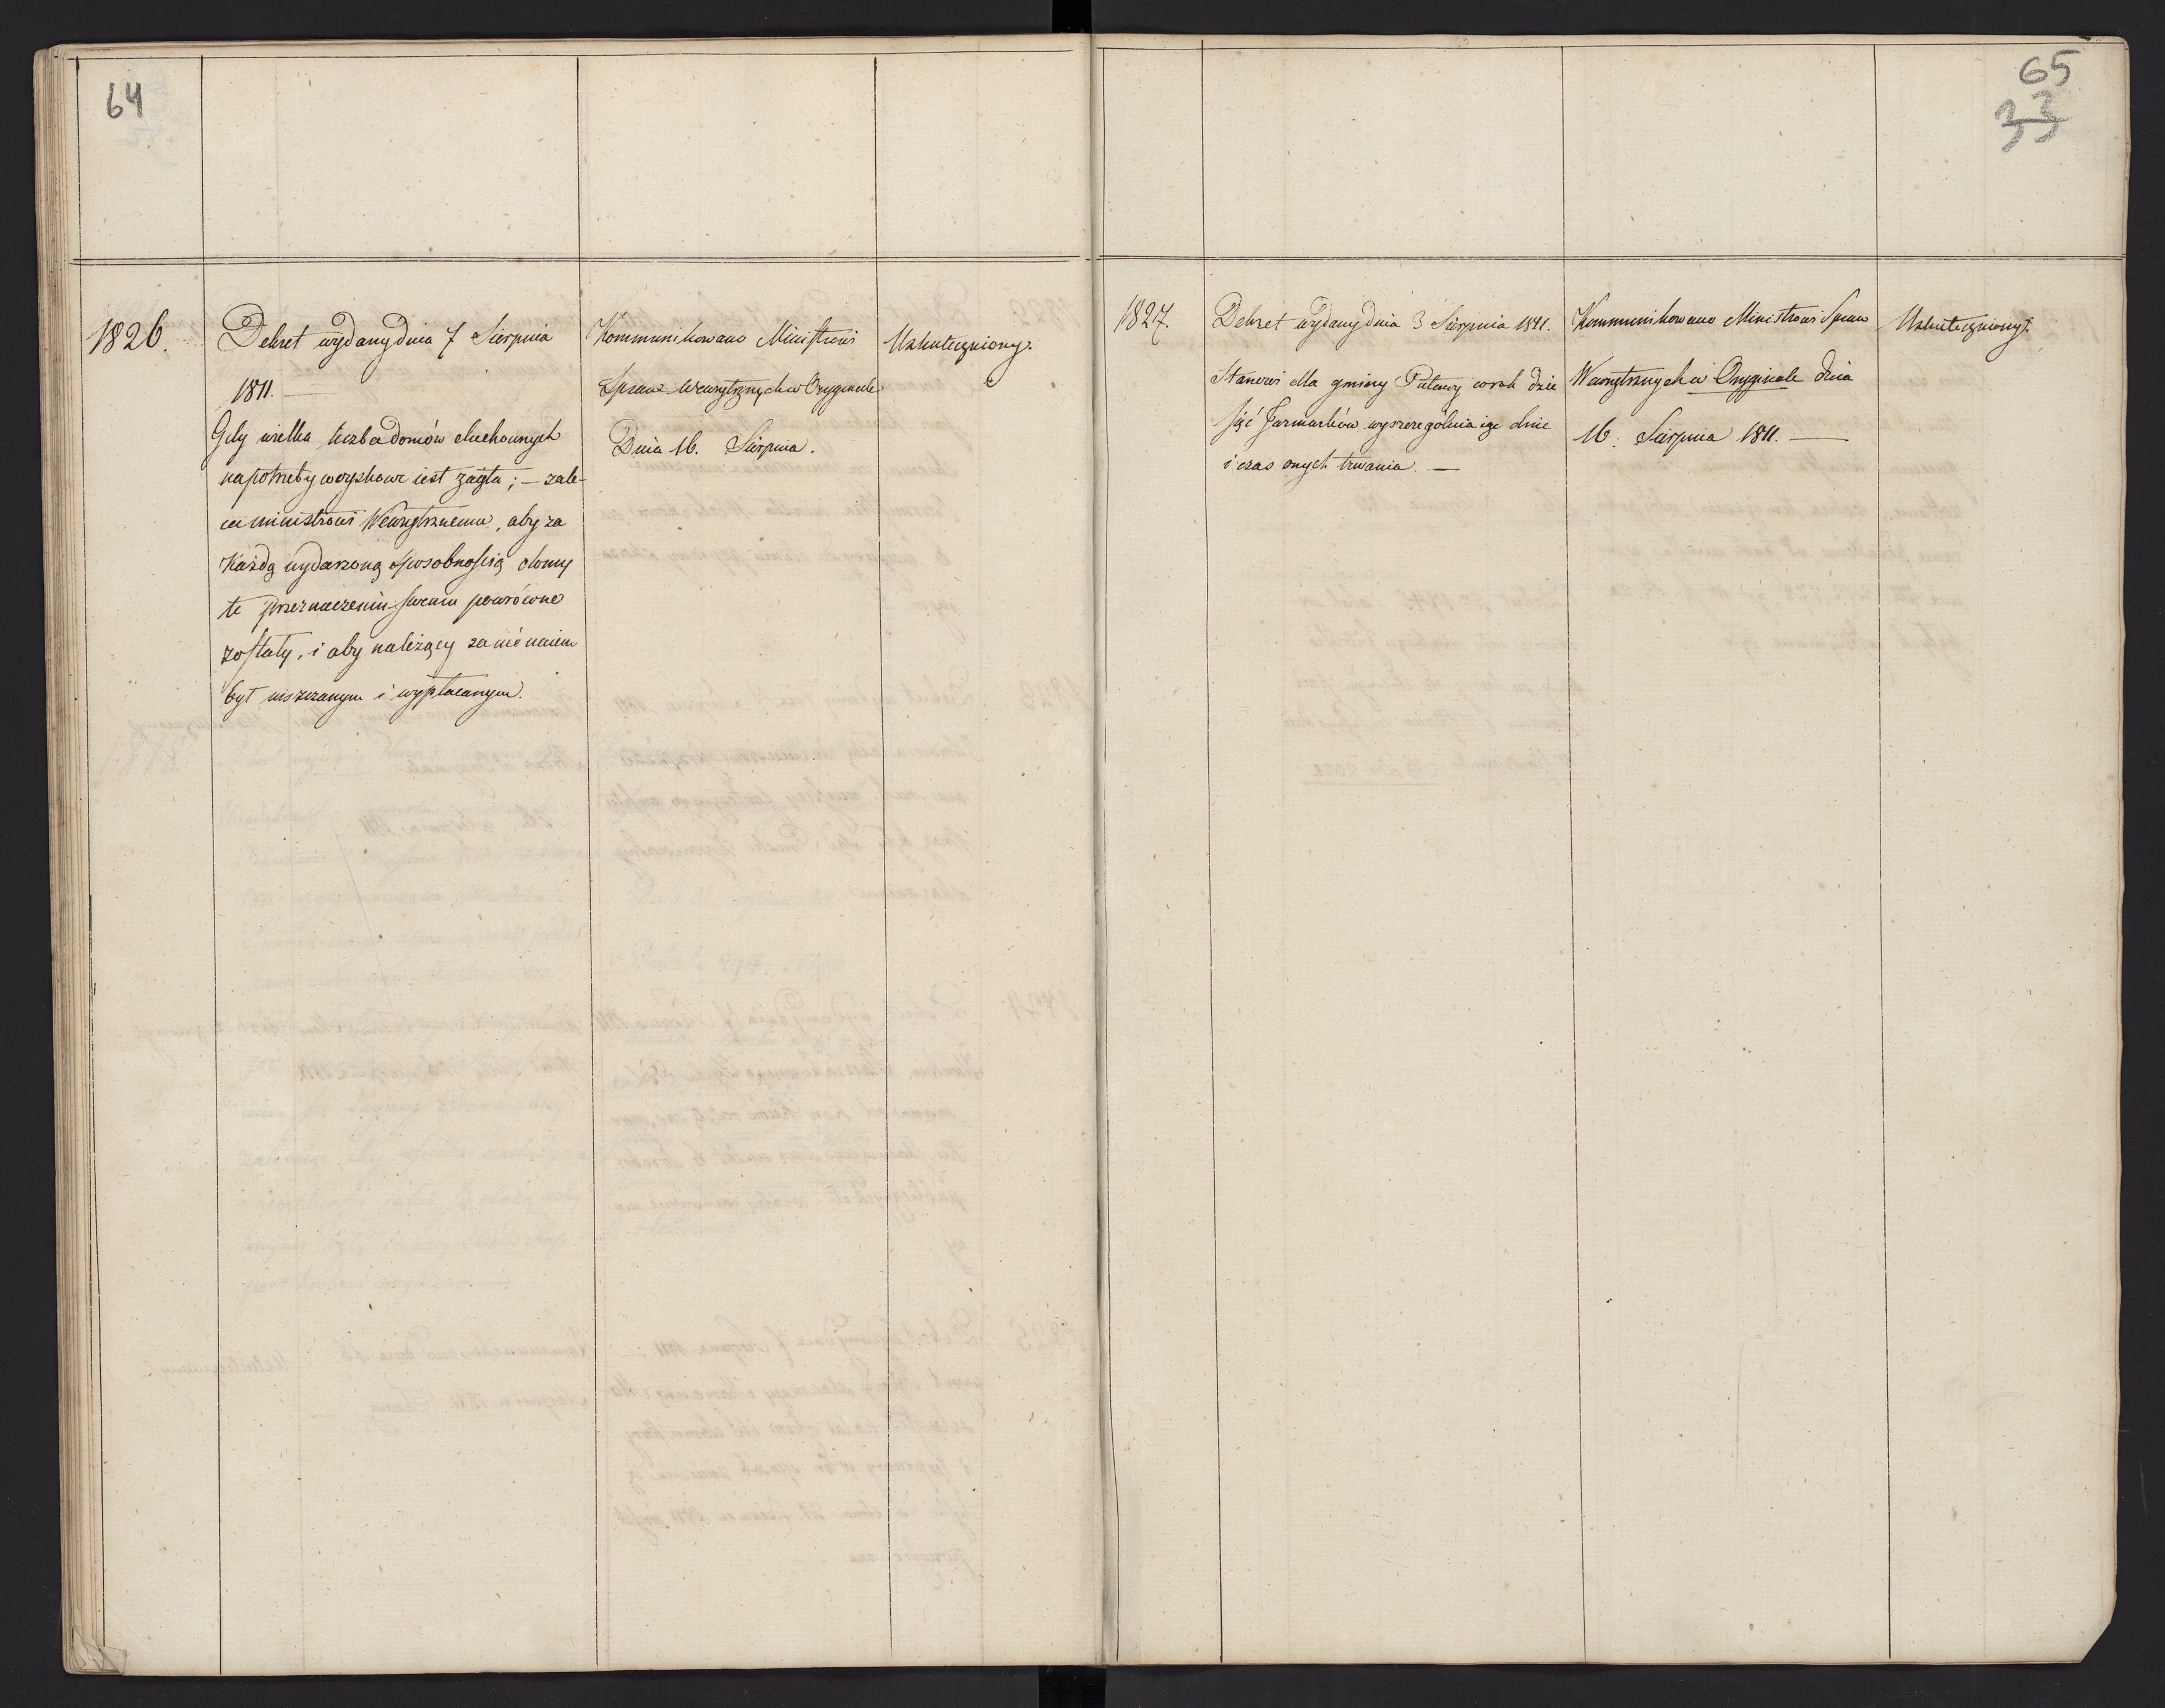 64
1826.
Dekret wydany dnia 7 Sierpnia
1811. —
Gdy wielka liczba domów duchownych
na potrzeby woyskowe iest zaięta; — zale-
ca ministrowi Wewnętrznemu, aby za
każdą wydarzoną sposobnością domy
te przeznaczeniu swemu powrócone
zostały, i aby należący za nie naiem
był uiszczanym i wypłacanym.
Kommunikowano Ministrowi
Spraw Wewnętrznych w Oryginale
Dnia 16. Sierpnia.
Uskuteczniony.
65
33
1827.
Dekret wydany dnia 3 Sierpnia 1811.
Stanowi dla gminy Puławy w rok dzie
sięć Jarmarków wyszczególniaiąc dnie
i czas onych trwania. —
Kommunikowano Ministrowi Spraw
Wewnętrznych w Oryginale dnia
16. Sierpnia 1811. —
Uskuteczniony.